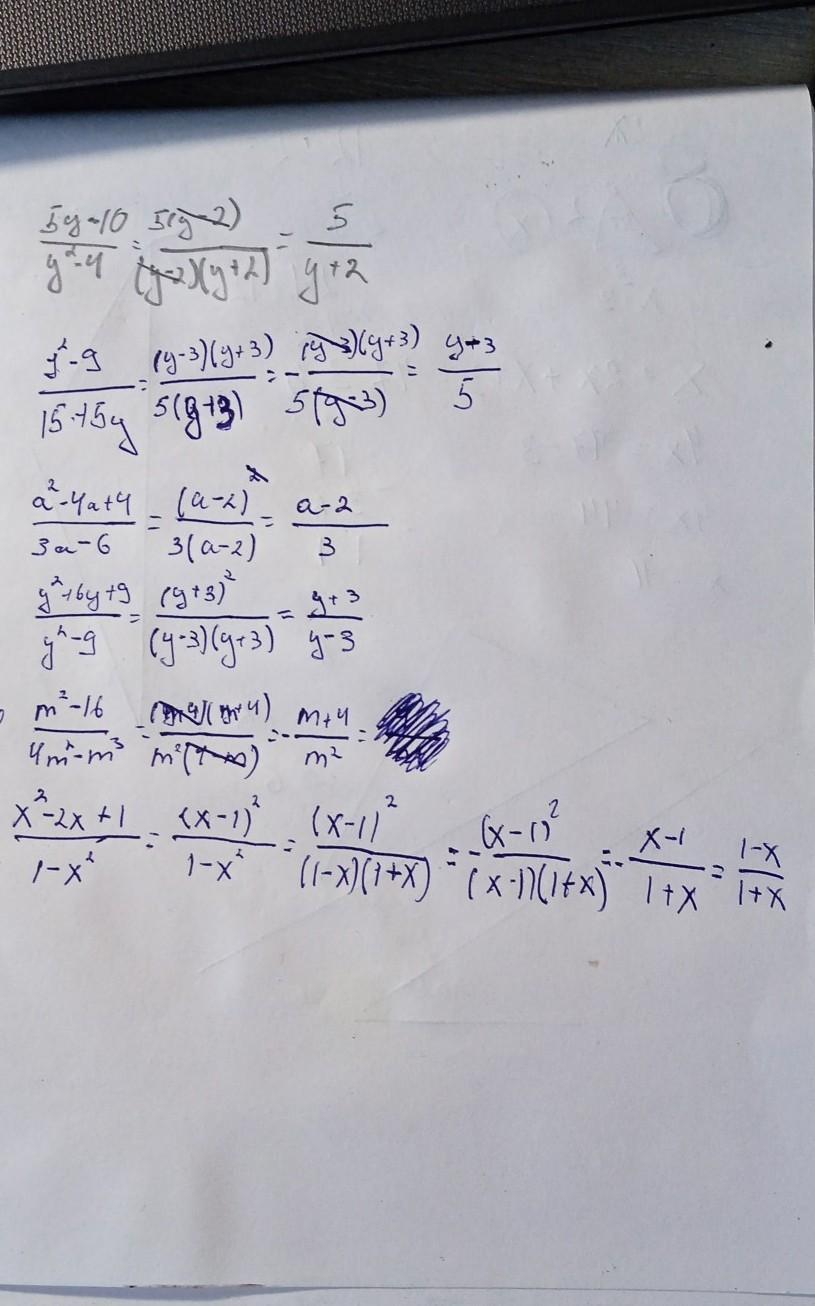 (5y-10)/(y²-4) = 5(y-2)/((y-2)(y+2)) = 5/(y+2)
(y²-9)/(15+5y) = (y-3)(y+3)/(5(y+3)) = -(y-3)(y+3)/(5(y-3)) = (y+3)/5
(a²-4a+4)/(3a-6) = (a-2)²/(3(a-2)) = (a-2)/3
(y²+6y+9)/(y²-9) = (y+3)²/((y-3)(y+3)) = (y+3)/(y-3)
(m²-16)/(4m²-m³) = (m-4)(m+4)/(m²(4-m)) = -(m+4)/m² =
(x²-2x+1)/(1-x²) = (x-1)²/(1-x²) = (x-1)²/((1-x)(1+x)) = -(x-1)²/((x-1)(1+x)) = -(x-1)/(1+x) = (1-x)/(1+x)